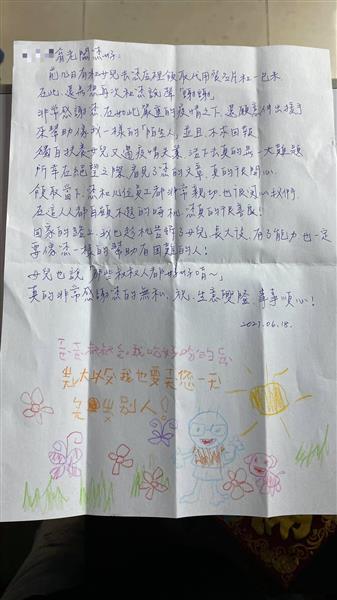 有老闆您好:
前幾日有和女兒去您店裡領取代用餐名片和一包米
在此還是想再次和您說聲「謝謝」
非常感謝您,在如此嚴重的疫情之下,還願意伸出援手
來幫助像我一樣的「陌生人」,並且不求回報
獨自扶養女兒又遇疫情失業,活下去真的是一大難題
所幸在絕望之際,看見了您的文章,真的很開心
領取當下,您和以及員工都非常親切,也很關心我們
在這人人都自顧不暇的時機,您真的很善良!
回家的路上,我也趁機告訴了女兒,長大後,有了能力也一定
要像您一樣的幫助有困難的人!
女兒也說「那些叔叔人都好好唷~」
真的非常感謝您的無私,祝,生意興隆,事事順心!
2021.06.18.
謝謝叔叔給我吃好吃的
長大後我也要像您一天
去 別人!